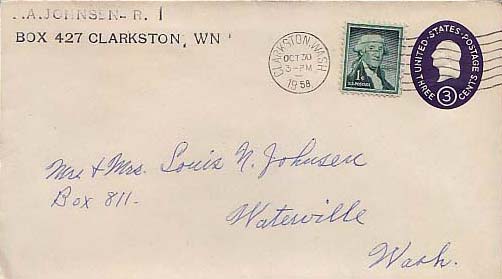 .A.JOHNSEN- R. 1
BOX 427 CLARKSTON, WN
CLARKSTON, WASH.
OCT 30
3-PM
1958
1¢
U.S. POSTAGE
UNITED·STATES·POSTAGE
THREE 3 CENTS
Mr. & Mrs. Louis N. Johnsen
Box 811-
Waterville
Wash.